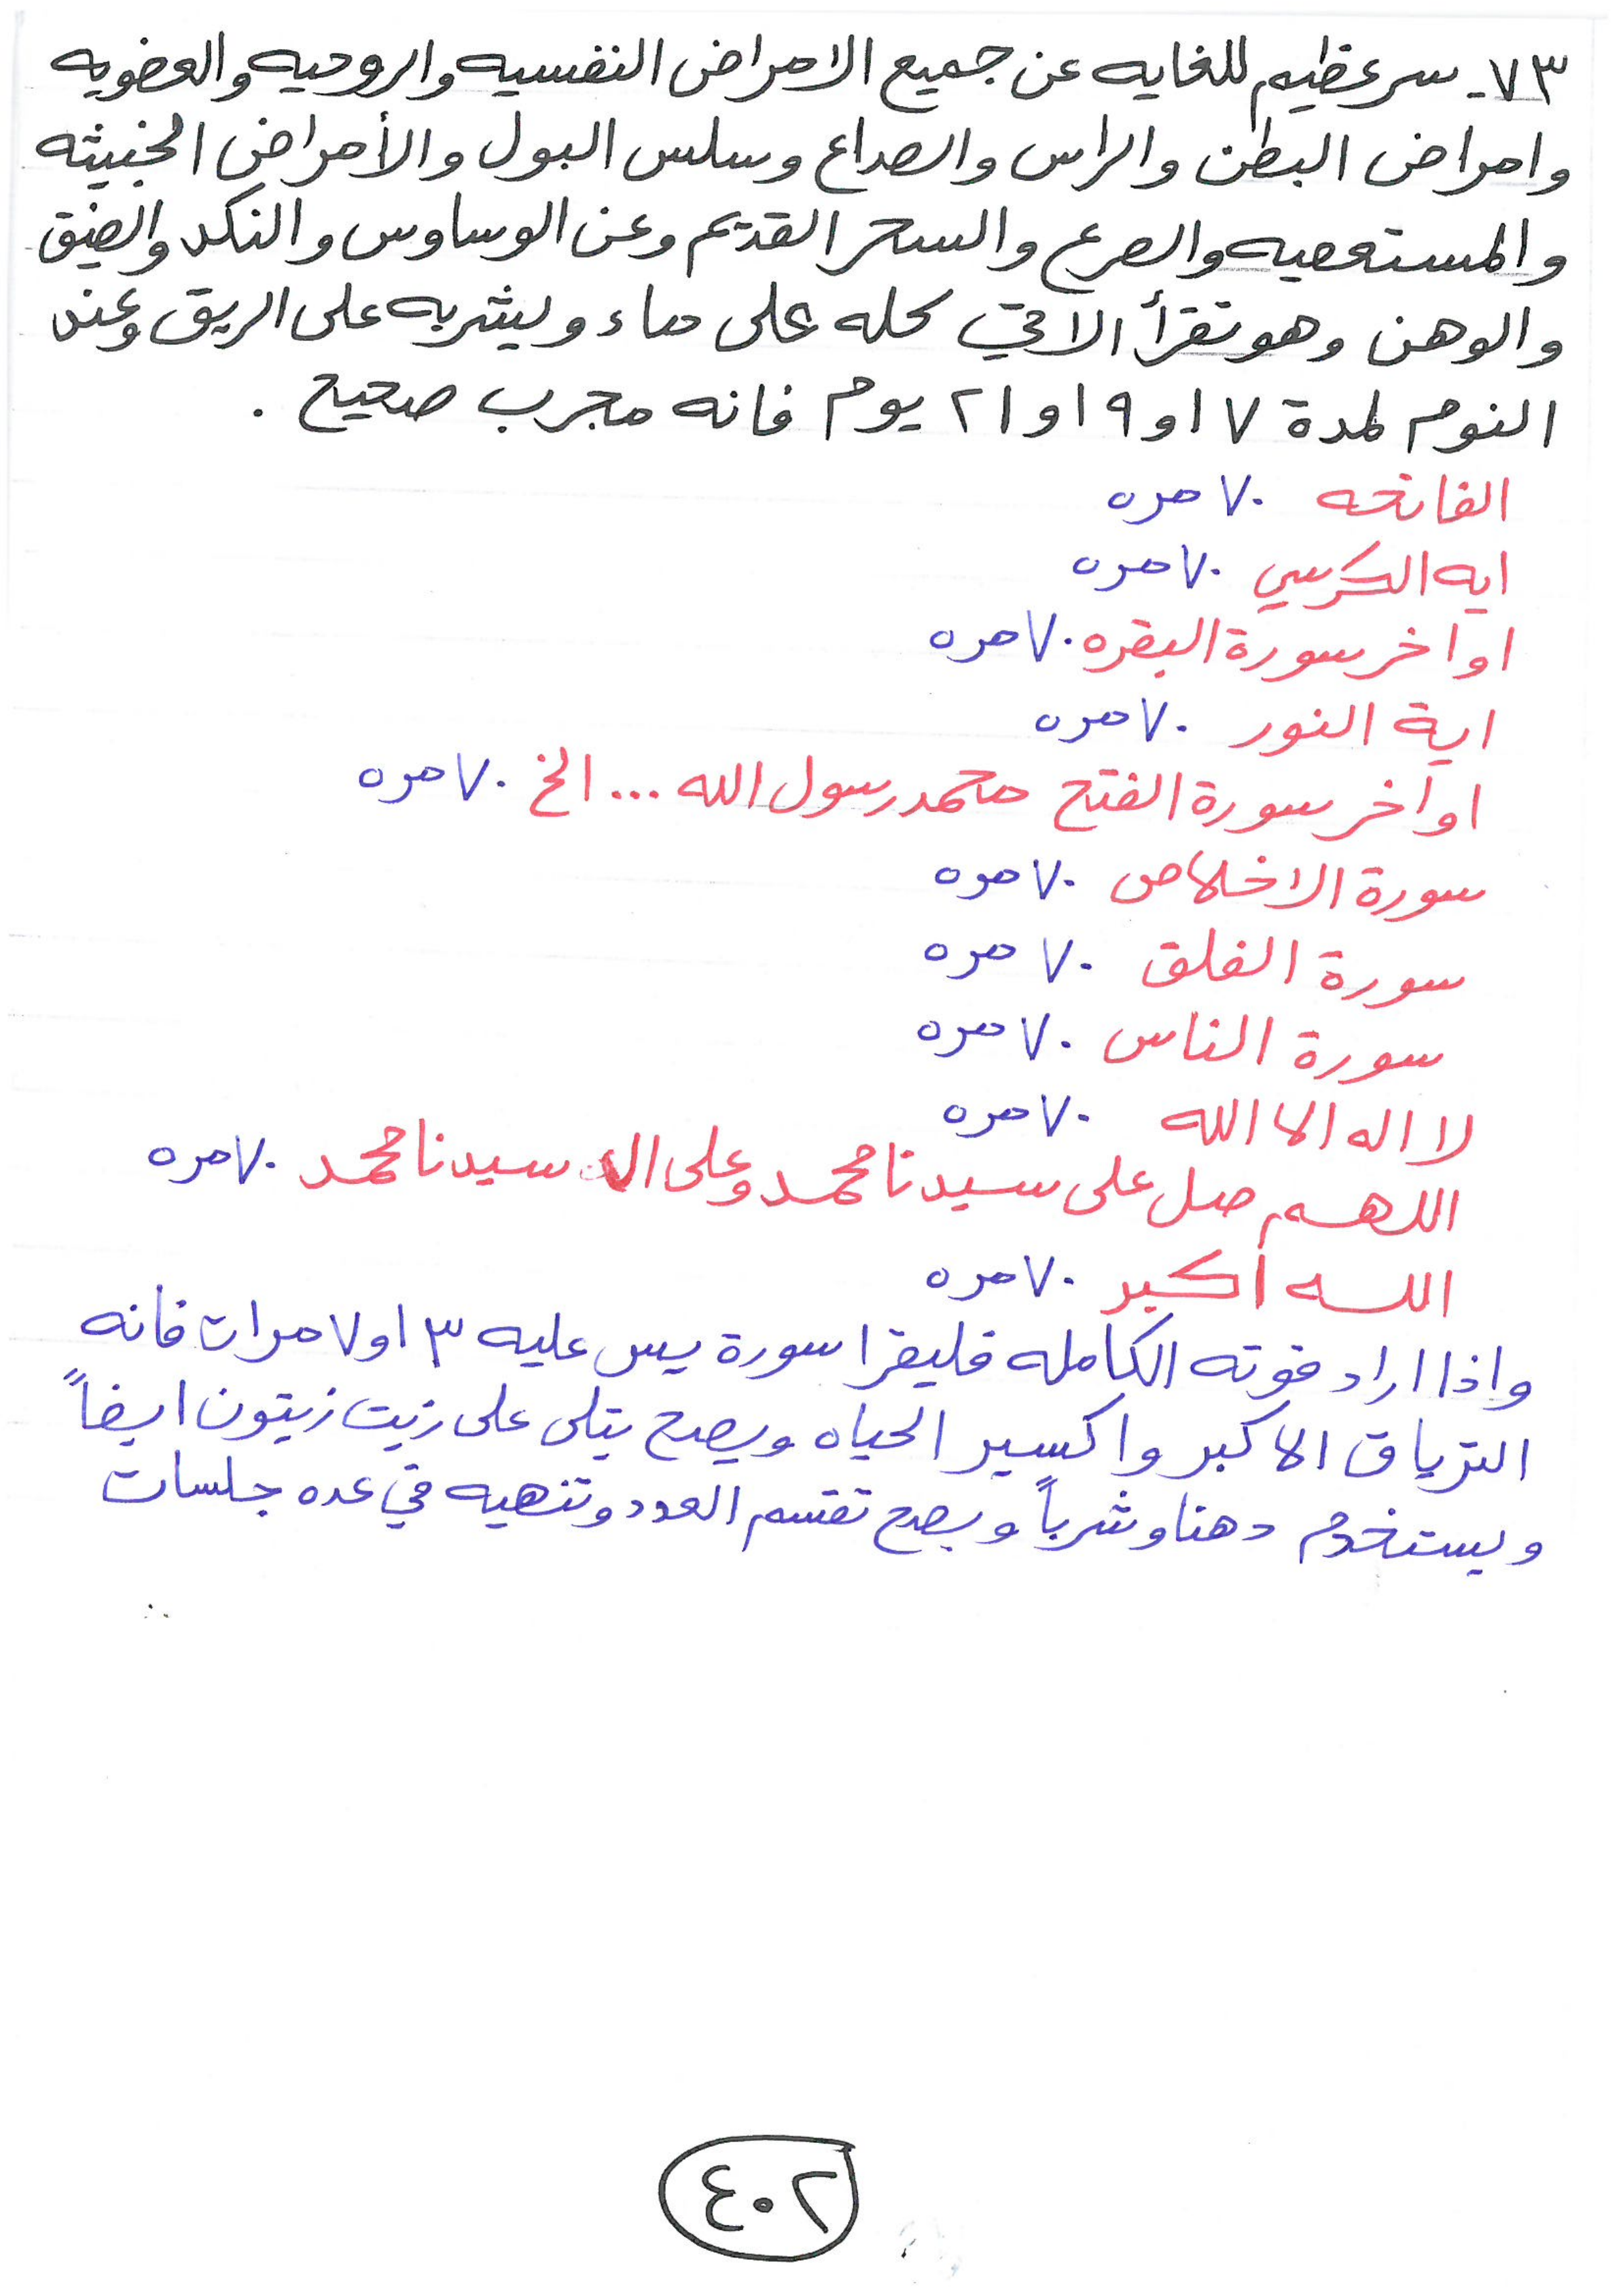 ٧٣- سر عظيم للغايه عن جميع الامراض النفسيه والروحيه والعضويه
وامراض البطن والراس والصداع وسلس البول والأمراض الخبيثه
والمستعصيه والصرع والسحر القديم وعن الوساوس والنكد والضيق
والوهن وهو تقرأ الاتي كله على ماء ويشربه على الريق وعند
النوم لمدة ٧ او ٩ او ٢١ يوم فانه مجرب صحيح .
الفاتحه ٧٠ مره
ايه الكرسي ٧٠ مره
اواخر سورة البقره ٧٠ مره
اية النور ٧٠ مره
اواخر سورة الفتح محمد رسول الله ... الخ ٧٠ مره
سورة الاخلاص ٧٠ مره
سورة الفلق ٧٠ مره
سورة الناس ٧٠ مره
لا اله الا الله ٧٠ مره
اللهم صل على سيدنا محمد وعلى ال سيدنا محمد ٧٠ مره
الله اكبر ٧٠ مره
واذا اراد قوته الكامله فليقرا سورة يس عليه ٣ او ٧ مرات فانه
الترياق الاكبر واكسير الحياه ويصح يتلى على زيت زيتون ايضاً
ويستخدم دهنا وشرباً ويصح تقسم العدد وتنهيه في عده جلسات
٤٠٢